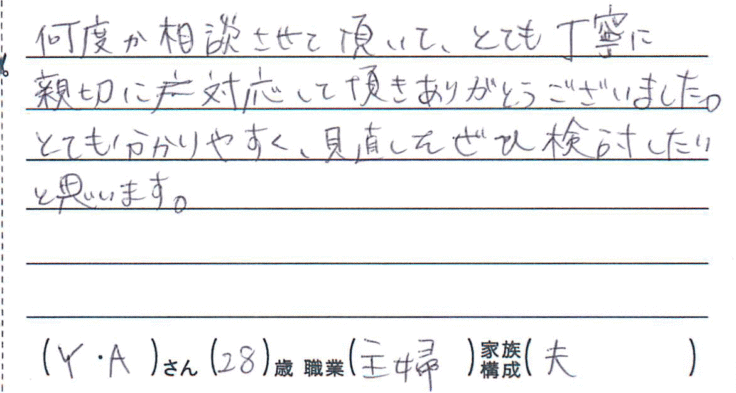 何度か相談させて頂いて、とても丁寧に
親切に対応して頂きありがとうございました。
とても分かりやすく、見直しもぜひ検討したい
と思います。
(Y・A)さん(28)歳 職業(主婦)家族構成(夫)